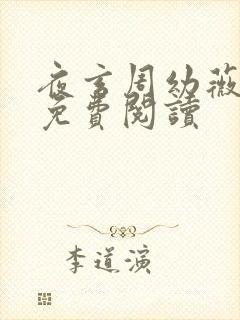 夜言周幼薇
免費閱讀
李道演